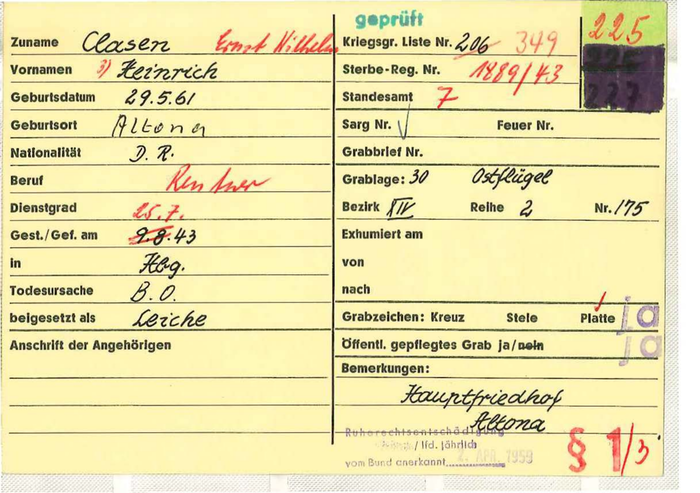 geprüft
Zuname Clasen Ernst Wilhelm
Vornamen 3) Heinrich
Geburtsdatum 29.5.61
Geburtsort Altona
Nationalität D. R.
Beruf Rentner
Dienstgrad 25.7.
Gest./Gef. am 9.8.43
in Hbg.
Todesursache B.O.
beigesetzt als Leiche
Anschrift der Angehörigen
Kriegsgr. Liste Nr. 206 349
225
Sterbe-Reg. Nr. 1889/43
227
Standesamt 7
Sarg Nr. Feuer Nr.
Grabbrief Nr.
Grablage: 30 Ostflügel
Bezirk XIV Reihe 2 Nr. 175
Exhumiert am
von
nach
Grabzeichen: Kreuz Stele Platte ja
Öffentl. gepflegtes Grab ja/nein ja
Bemerkungen:
Hauptfriedhof
Altona
Ruherechtsentschädigung
/ lfd. jährlich
vom Bund anerkannt 2. APR. 1959
§ 1/3